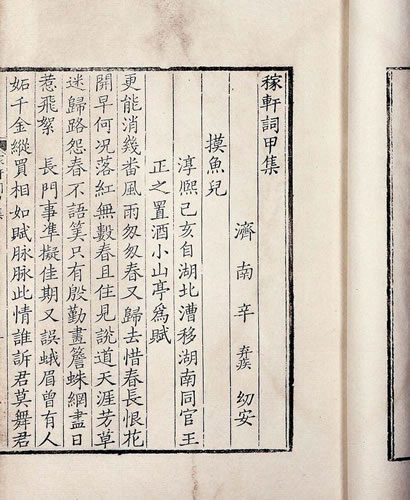 稼軒詞甲集
濟南辛棄疾幼安
摸魚兒
淳熈己亥自湖北漕移湖南同官王
正之置酒小山亭爲賦
更能消幾畨風雨匆匆春又歸去惜春長恨花
開早何况落紅無數春且住見説道天涯芳草
迷歸路怨春不語筭只有殷勤畫簷蛛網盡日
惹飛絮 長門事凖擬佳期又誤蛾眉曾有人
妬千金縱買相如賦脉脉此情誰訴君莫舞君